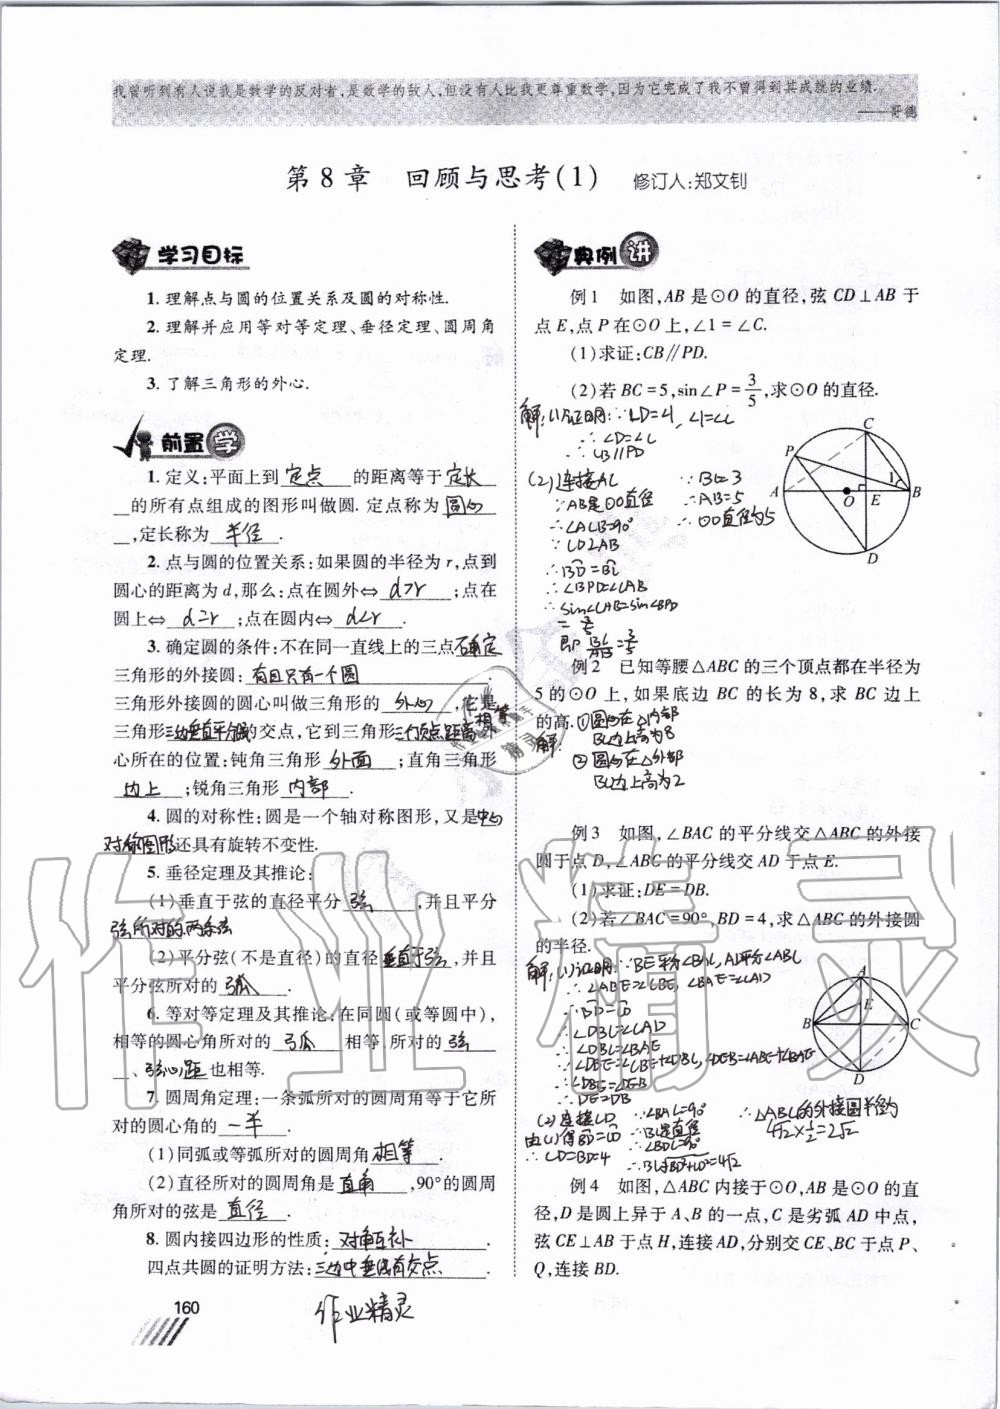 我曾听到有人说我是数学的反对者,是数学的敌人,但没有人比我更尊重数学,因为它完成了我不曾得到其成就的业绩.
——哥德
第8章 回顾与思考(1) 修订人:郑文钊
学习目标
1. 理解点与圆的位置关系及圆的对称性.
2. 理解并应用等对等定理、垂径定理、圆周角
定理.
3. 了解三角形的外心.
前置 学
1. 定义:平面上到 定点 的距离等于 定长
的所有点组成的图形叫做圆. 定点称为 圆心
,定长称为 半径 .
2. 点与圆的位置关系:如果圆的半径为r,点到
圆心的距离为d,那么:点在圆外⇔ d>r ;点在
圆上⇔ d=r ;点在圆内⇔ d<r .
3. 确定圆的条件:不在同一直线上的三点 确定
三角形的外接圆: 有且只有一个圆 .
三角形外接圆的圆心叫做三角形的 外心 ,它是
三角形 三边垂直平分线 的交点,它到三角形 三个顶点距离相等
心所在的位置:钝角三角形 外面 ;直角三角形
边上 ;锐角三角形 内部 .
4. 圆的对称性:圆是一个轴对称图形,又是 中心
对称图形 还具有旋转不变性.
5. 垂径定理及其推论:
(1)垂直于弦的直径平分 弦 ,并且平分
弦所对的两条弦
(2)平分弦(不是直径)的直径 垂直于弦 ,并且
平分弦所对的 弧 .
6. 等对等定理及其推论:在同圆(或等圆中),
相等的圆心角所对的 弧 相等,所对的 弦
、 弦心距 也相等.
7. 圆周角定理:一条弧所对的圆周角等于它所
对的圆心角的 一半 .
(1)同弧或等弧所对的圆周角 相等 .
(2)直径所对的圆周角是 直角 ,90°的圆周
角所对的弦是 直径 .
8. 圆内接四边形的性质: 对角互补 .
四点共圆的证明方法: 三边中垂线有交点 .
160
作业精灵
典例 讲
例1 如图,AB是⊙O的直径,弦CD⊥AB于
点E,点P在⊙O上,∠1=∠C.
(1)求证:CB∥PD.
(2)若BC=5,sin∠P=3/5,求⊙O的直径.
解:(1)证明:∵∠D=∠1,∠1=∠C
∴∠D=∠C
∴CB∥PD
(2)连接AC
∵AB是⊙O直径
∴∠ACB=90°
∵CD⊥AB
∴BD=BC
∴∠BPD=∠CAB
∴sin∠CAB=sin∠BPD
=3/5
即BC/AB=3/5
∵BC=3
∴AB=5
∴⊙O直径为5
C
P
1
A
O
E
B
D
例2 已知等腰△ABC的三个顶点都在半径为
5的⊙O上,如果底边BC的长为8,求BC边上
的高.
解:
①圆心在△内部
BC边上高为8
②圆心在△外部
BC边上高为2
例3 如图,∠BAC的平分线交△ABC的外接
圆于点D,∠ABC的平分线交AD于点E.
(1)求证:DE=DB.
(2)若∠BAC=90°,BD=4,求△ABC的外接圆
的半径.
解:(1)证明:∵BE平分∠BAC,AD平分∠ABC
∴∠ABE=∠CBE,∠BAE=∠CAD
∴BD=CD
∴∠DBC=∠CAD
∴∠DBC=∠BAE
∴∠DBE=∠CBE+∠DBC,∠DEB=∠ABE+∠BAE
∴∠DBE=∠DEB
∴DE=DB
(2)连接CD
由(1)得BD=CD
∴CD=BD=4
∵∠BAC=90°
∴BC是直径
∴∠BDC=90°
∴BC=√BD²+CD²=4√2
∴△ABC的外接圆半径为
4√2×1/2=2√2
A
E
B
C
D
例4 如图,△ABC内接于⊙O,AB是⊙O的直
径,D是圆上异于A、B的一点,C是劣弧AD中点,
弦CE⊥AB于点H,连接AD,分别交CE、BC于点P、
Q,连接BD.
作业精灵